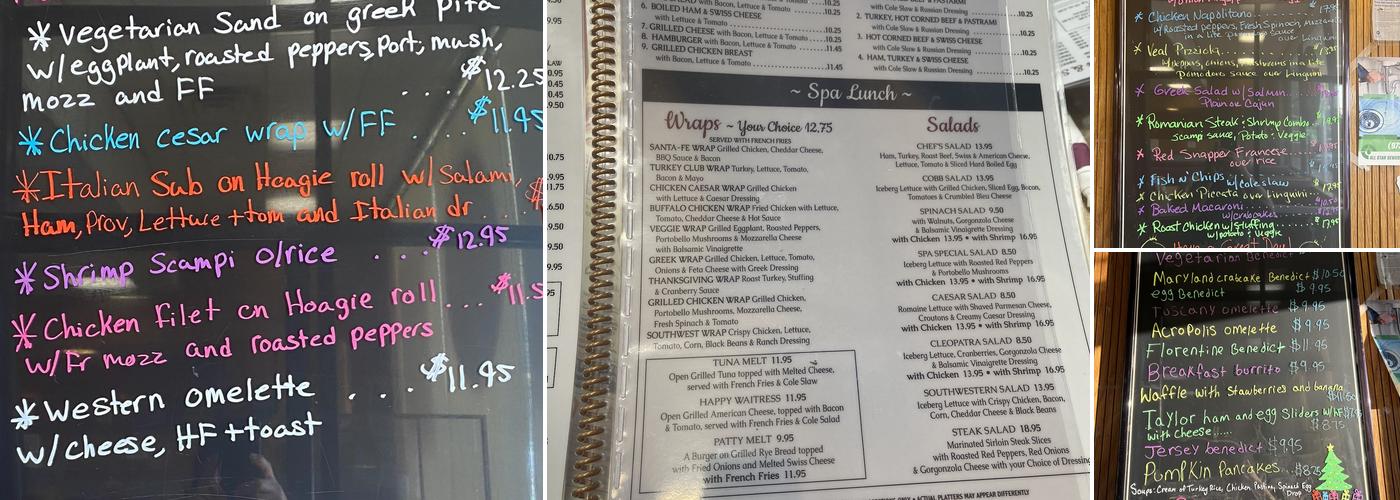 * Vegetarian Sand on greek pita
w/eggplant, roasted peppers, Port, mush,
mozz and FF . . . $12.25
* Chicken cesar wrap w/FF . . . . $11.95
* Italian Sub on Hoagie roll w/Salami,
Ham, Prov, Lettuce + tom and Italian dr . . . . $
* Shrimp Scampi o/rice . . . $12.95
* Chicken filet on Hoagie roll . . . $11.5
w/Fr mozz and roasted peppers
* Western omelette . . . $11.95
w/cheese, HF + toast
9.95
LAW
0.95
0.45
9.50
0.75
9.95
11.75
6.50
9.50
9.50
with Bacon, Lettuce & Tomato
6. BOILED HAM & SWISS CHEESE
with Lettuce & Tomato 10.25
7. GRILLED CHEESE with Bacon, Lettuce & Tomato 10.25
8. HAMBURGER with Bacon, Lettuce & Tomato 11.45
9. GRILLED CHICKEN BREAST
with Bacon, Lettuce & Tomato 11.45
with Cole Slaw & Russian Dressing 10.25
2. TURKEY, HOT CORNED BEEF & PASTRAMI
with Cole Slaw & Russian Dressing 10.25
3. HOT CORNED BEEF & SWISS CHEESE
with Cole Slaw & Russian Dressing 10.25
4. HAM, TURKEY & SWISS CHEESE
with Cole Slaw & Russian Dressing 10.25
~ Spa Lunch ~
Wraps ~ Your Choice 12.75
SERVED WITH FRENCH FRIES
SANTA-FE WRAP Grilled Chicken, Cheddar Cheese,
BBQ Sauce & Bacon
TURKEY CLUB WRAP Turkey, Lettuce, Tomato,
Bacon & Mayo
CHICKEN CAESAR WRAP Grilled Chicken
with Lettuce & Caesar Dressing
BUFFALO CHICKEN WRAP Fried Chicken with Lettuce,
Tomato, Cheddar Cheese & Hot Sauce
VEGGIE WRAP Grilled Eggplant, Roasted Peppers,
Portobello Mushrooms & Mozzarella Cheese
with Balsamic Vinaigrette
GREEK WRAP Grilled Chicken, Lettuce, Tomato,
Onions & Feta Cheese with Greek Dressing
THANKSGIVING WRAP Roast Turkey, Stuffing
& Cranberry Sauce
GRILLED CHICKEN WRAP Grilled Chicken,
Portobello Mushrooms, Mozzarella Cheese,
Fresh Spinach & Tomato
SOUTHWEST WRAP Crispy Chicken, Lettuce,
Tomato, Corn, Black Beans & Ranch Dressing
TUNA MELT 11.95
Open Grilled Tuna topped with Melted Cheese,
served with French Fries & Cole Slaw
HAPPY WAITRESS 11.95
Open Grilled American Cheese, topped with Bacon
& Tomato, served with French Fries & Cole Salad
PATTY MELT 9.95
A Burger on Grilled Rye Bread topped
with Fried Onions and Melted Swiss Cheese
with French Fries 11.95
Salads
CHEF'S SALAD 13.95
Ham, Turkey, Roast Beef, Swiss & American Cheese,
Lettuce, Tomato & Sliced Hard Boiled Egg
COBB SALAD 13.95
Iceberg Lettuce with Grilled Chicken, Sliced Egg, Bacon,
Tomatoes & Crumbled Bleu Cheese
SPINACH SALAD 9.50
with Walnuts, Gorgonzola Cheese
& Balsamic Vinaigrette Dressing
with Chicken 13.95 • with Shrimp 16.95
SPA SPECIAL SALAD 8.50
Iceberg Lettuce with Roasted Red Peppers
& Portobello Mushrooms
with Chicken 12.95 • with Shrimp 16.95
CAESAR SALAD 8.50
Romaine Lettuce with Shaved Parmesan Cheese,
Croutons & Creamy Caesar Dressing
with Chicken 13.95 • with Shrimp 16.95
CLEOPATRA SALAD 8.50
Iceberg Lettuce, Cranberries, Gorgonzola Cheese
& Balsamic Vinaigrette Dressing
with Chicken 13.95 • with Shrimp 16.95
SOUTHWESTERN SALAD 13.95
Iceberg Lettuce with Crispy Chicken, Bacon,
Corn, Cheddar Cheese & Black Beans
STEAK SALAD 18.95
Marinated Sirloin Steak Slices
with Roasted Red Peppers, Red Onions
& Gorgonzola Cheese with your Choice of Dressing
• ACTUAL PLATTERS MAY APPEAR DIFFERENTLY
* Chicken Napolitano
w/Roasted peppers, Fresh Spinach, Mozzarella
in a lite Sauce over Linguini
* Veal Pizziola
Peppers, onions, mushrooms in a lite
Pomodoro sauce over Linguini
* Greek Salad w/Salmon
Plain or Cajun
* Romanian Steak + Shrimp Combo
scampi sauce, Potato + Veggie
* Red Snapper Francese
over rice
* Fish n' Chips w/coleslaw
* Chicken Piccata over Linguini
* Baked Macaroni
w/crabcakes
* Roast Chicken w/Stuffing
w/potato + Veggie
Have a Great Day!
Vegetarian Benedict
Maryland crabcake Benedict $10.50
egg Benedict $9.95
Tuscany omelette $9.95
Acropolis omelette $9.95
Florentine Benedict $11.95
Breakfast burrito $9.95
Waffle with stawberries and banana $11.50
Taylor ham and egg Sliders w/HF
with cheese...... $8.75
Jersey benedict $9.95
Pumpkin Pancakes...$8.25
Soups: Cream of Turkey Rice, Chicken Pastina, Spinach Egg
Drop